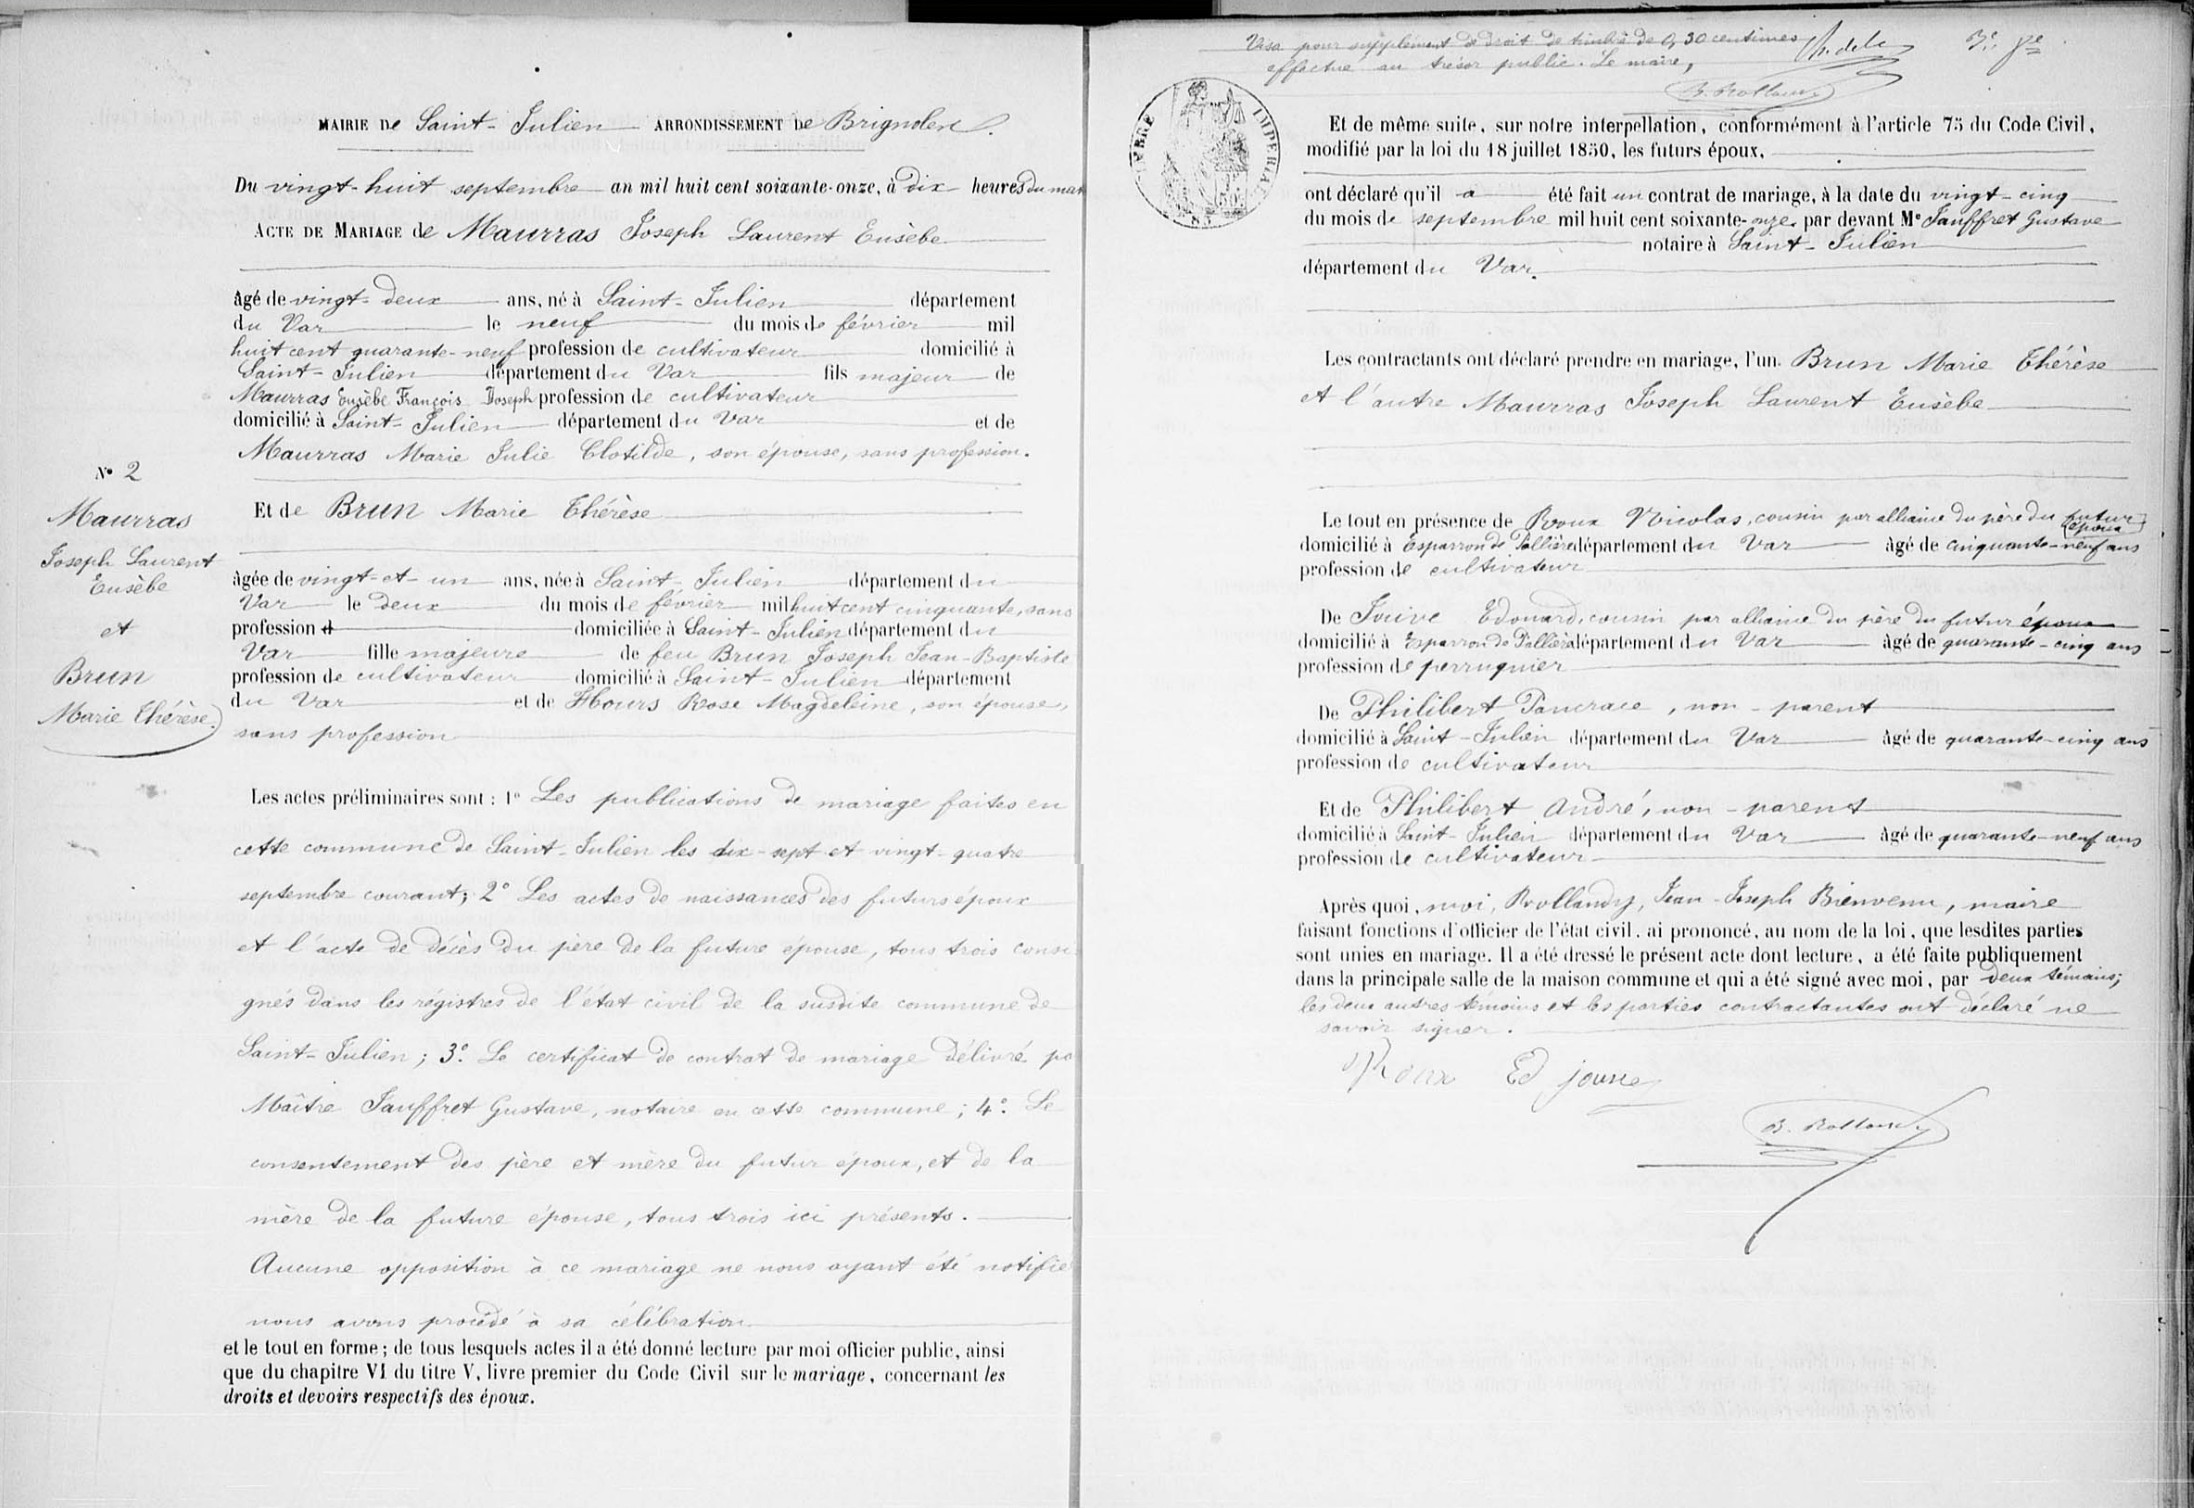 MAIRIE DE Saint-Julien ARRONDISSEMENT DE Brignoles.
Du vingt-huit septembre an mil huit cent soixante-onze, à dix heures du mat
ACTE DE MARIAGE de Maurras Joseph Laurent Eusèbe
âgé de vingt-deux ans, né à Saint-Julien département
du Var le neuf du mois de février mil
huit cent quarante-neuf profession de cultivateur domicilié à
Saint-Julien département du Var fils majeur de
Maurras Eusèbe François Joseph profession de cultivateur
domicilié à Saint-Julien département du Var et de
Maurras Marie Julie Clotilde, son épouse, sans profession.
N° 2
Maurras
Joseph Laurent
Eusèbe
et
Brun
Marie Thérèse.
Et de Brun Marie Thérèse
âgée de vingt-et-un ans, née à Saint-Julien département du
Var le deux du mois de février mil huit cent cinquante, sans
profession d domiciliée à Saint-Julien département du
Var fille majeure de feu Brun Joseph Jean-Baptiste
profession de cultivateur domicilié à Saint-Julien département
du Var et de Hours Rose Magdeleine, son épouse,
sans profession
Les actes préliminaires sont : 1° Les publications de mariage faites en
cette commune de Saint-Julien les dix-sept et vingt-quatre
septembre courant; 2° Les actes de naissances des futurs époux
et l'acte de décès du père de la future épouse, tous trois consi
gnés dans les régistres de l'état civil de la susdite commune de
Saint-Julien; 3° Le certificat de contrat de mariage délivré pa
Maître Jauffret Gustave, notaire en cette commune; 4° Le
consentement des père et mère du futur époux, et de la
mère de la future épouse, tous trois ici présents.
Aucune opposition à ce mariage ne nous ayant été notifié
nous avons procédé à sa célébration
et le tout en forme ; de tous lesquels actes il a été donné lecture par moi officier public, ainsi
que du chapitre VI du titre V, livre premier du Code Civil sur le mariage, concernant les
droits et devoirs respectifs des époux.
Visa pour supplément de droit de timbre de 0,30 centimes
effectué au trésor public. Le maire,
B. Rolland
TIMBRE IMPERIAL
Et de même suite, sur notre interpellation, conformément à l'article 75 du Code Civil,
modifié par la loi du 18 juillet 1850, les futurs époux,
ont déclaré qu'il a été fait un contrat de mariage, à la date du vingt-cinq
du mois de septembre mil huit cent soixante-onze, par devant Me Jauffret Gustave
notaire à Saint-Julien
département du Var.
Les contractants ont déclaré prendre en mariage, l'un Brun Marie Thérèse
et l'autre Maurras Joseph Laurent Eusèbe
Le tout en présence de Roux Nicolas, cousin par alliance du père du futur
époux
domicilié à Esparron de Pallière département du Var âgé de cinquante-neuf ans
profession de cultivateur
De Jouve Edouard, cousin par alliance du père du futur époux
domicilié à Esparron de Pallière département du Var âgé de quarante-cinq ans
profession de perruquier
De Philibert Pancrace, non-parent
domicilié à Saint-Julien département du Var âgé de quarante-cinq ans
profession de cultivateur
Et de Philibert André, non-parent
domicilié à Saint-Julien département du Var âgé de quarante-neuf ans
profession de cultivateur
Après quoi, moi, Rollandy, Jean-Joseph Bienvenu, maire
faisant fonctions d'officier de l'état civil, ai prononcé, au nom de la loi, que lesdites parties
sont unies en mariage. Il a été dressé le présent acte dont lecture, a été faite publiquement
dans la principale salle de la maison commune et qui a été signé avec moi, par deux témoins;
les deux autres témoins et les parties contractantes ont déclaré ne
savoir signer.
Roux Ed jouve
B. Rolland